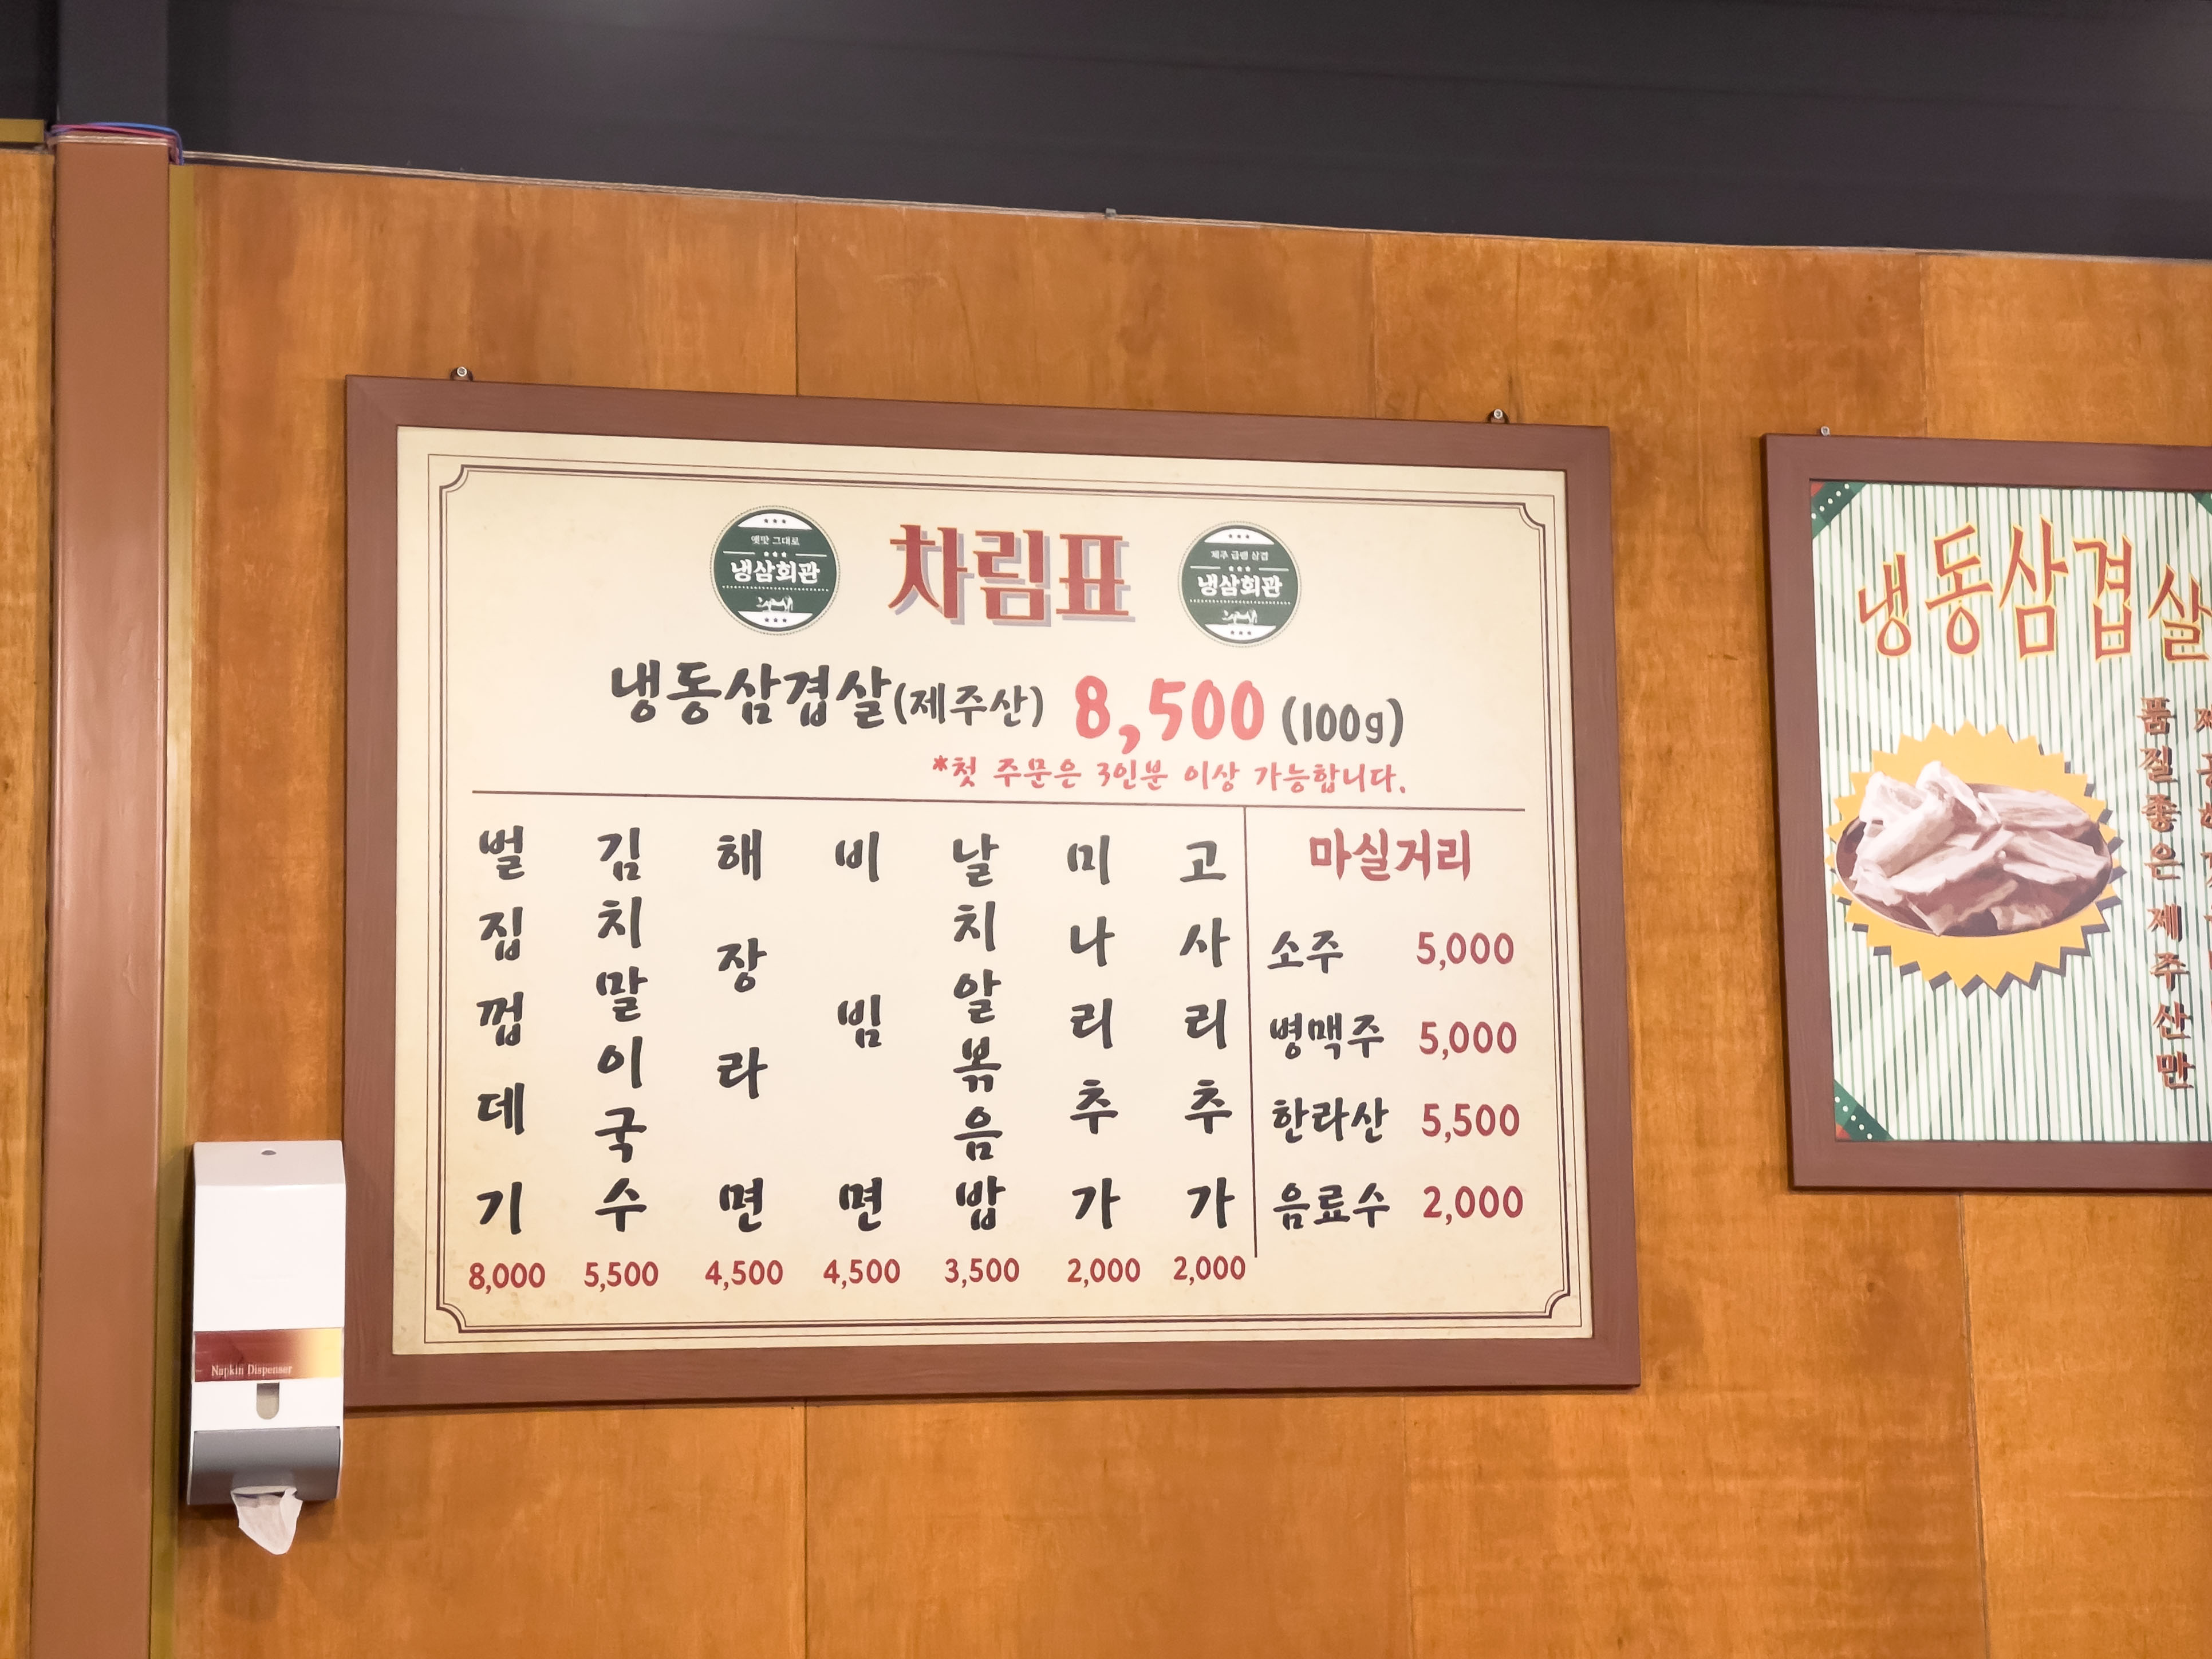 옛맛 그대로
냉삼회관
차림표
제주 급랭 삼겹
냉삼회관
냉동삼겹살(제주산) 8,500 (100g)
*첫 주문은 3인분 이상 가능합니다.
벌집껍데기 8,000
김치말이국수 5,500
해장라면 4,500
비빔면 4,500
날치알볶음밥 3,500
미나리추가 2,000
고사리추가 2,000
마실거리
소주 5,000
병맥주 5,000
한라산 5,500
음료수 2,000
냉동삼겹살
품질좋은 제주산만
Napkin Dispenser